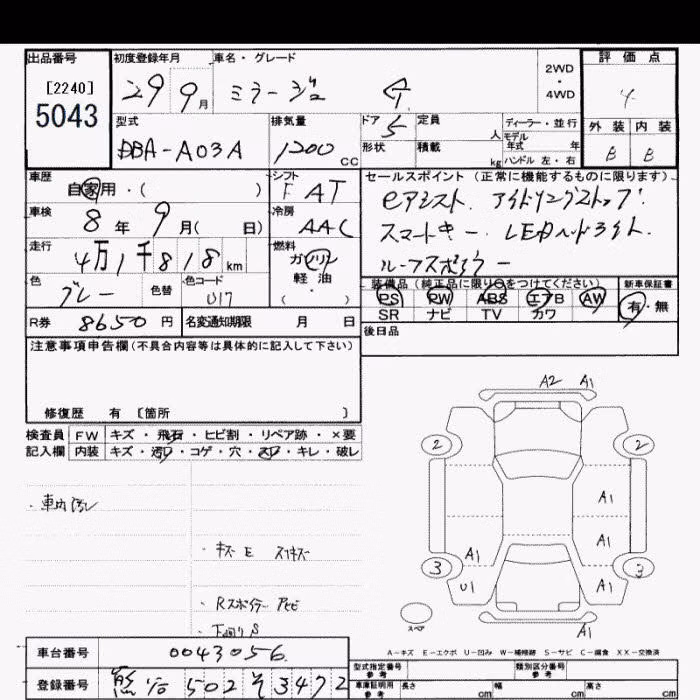 出品番号
[2240]
5043
初度登録年月
29 9月
車名・グレード
ミラージュ G
2WD
・
4WD
評価点
4
型式
DBA-A03A
排気量
1200 CC
ドア 5
形状
定員 人
積載 kg
ディーラー・並行
モデル
年式 年
ハンドル 左・右
外装 内装
B B
車歴
自家用・( )
車検
8年 9月( 日)
走行
4万1千818km
色
グレー
色替
色コード
U17
シフト
F AT
冷房
AAC
燃料
ガソリン
軽・油
( )
セールスポイント (正常に機能するものに限ります)
eアシスト. アイドリングストップ.
スマートキー. LEDヘッドライト.
ルーフスポイラー
装備品 (純正品に限り○をつけてください)
PS PW ABS エアB AW
SR ナビ TV カワ
新車保証書
有・無
R券 8650円
名変通知期限 月 日
後日品
注意事項申告欄 (不具合内容等は具体的に記入して下さい)
修復歴 有 [箇所 ]
検査員 FW キズ・飛石・ヒビ割・リペア跡・×要
記入欄 内装 キズ・汚れ・コゲ・穴・スレ・キレ・破レ
・車内汚レ
・キズE スリキズ
・Rスポイラー アセビ
・下回りS
A2 A1
2 2
A1
A1 A1
3 3
U1 A1
A1
スペア
A-キズ E-エクボ U-凹み W-補修跡 S-サビ C-腐食 XX-交換済
車台番号 0043056
登録番号 熊谷 502 そ 3472
型式指定番号
参考
類別区分番号
参考
車庫証明用
参考
長さ cm 幅 cm 高さ cm